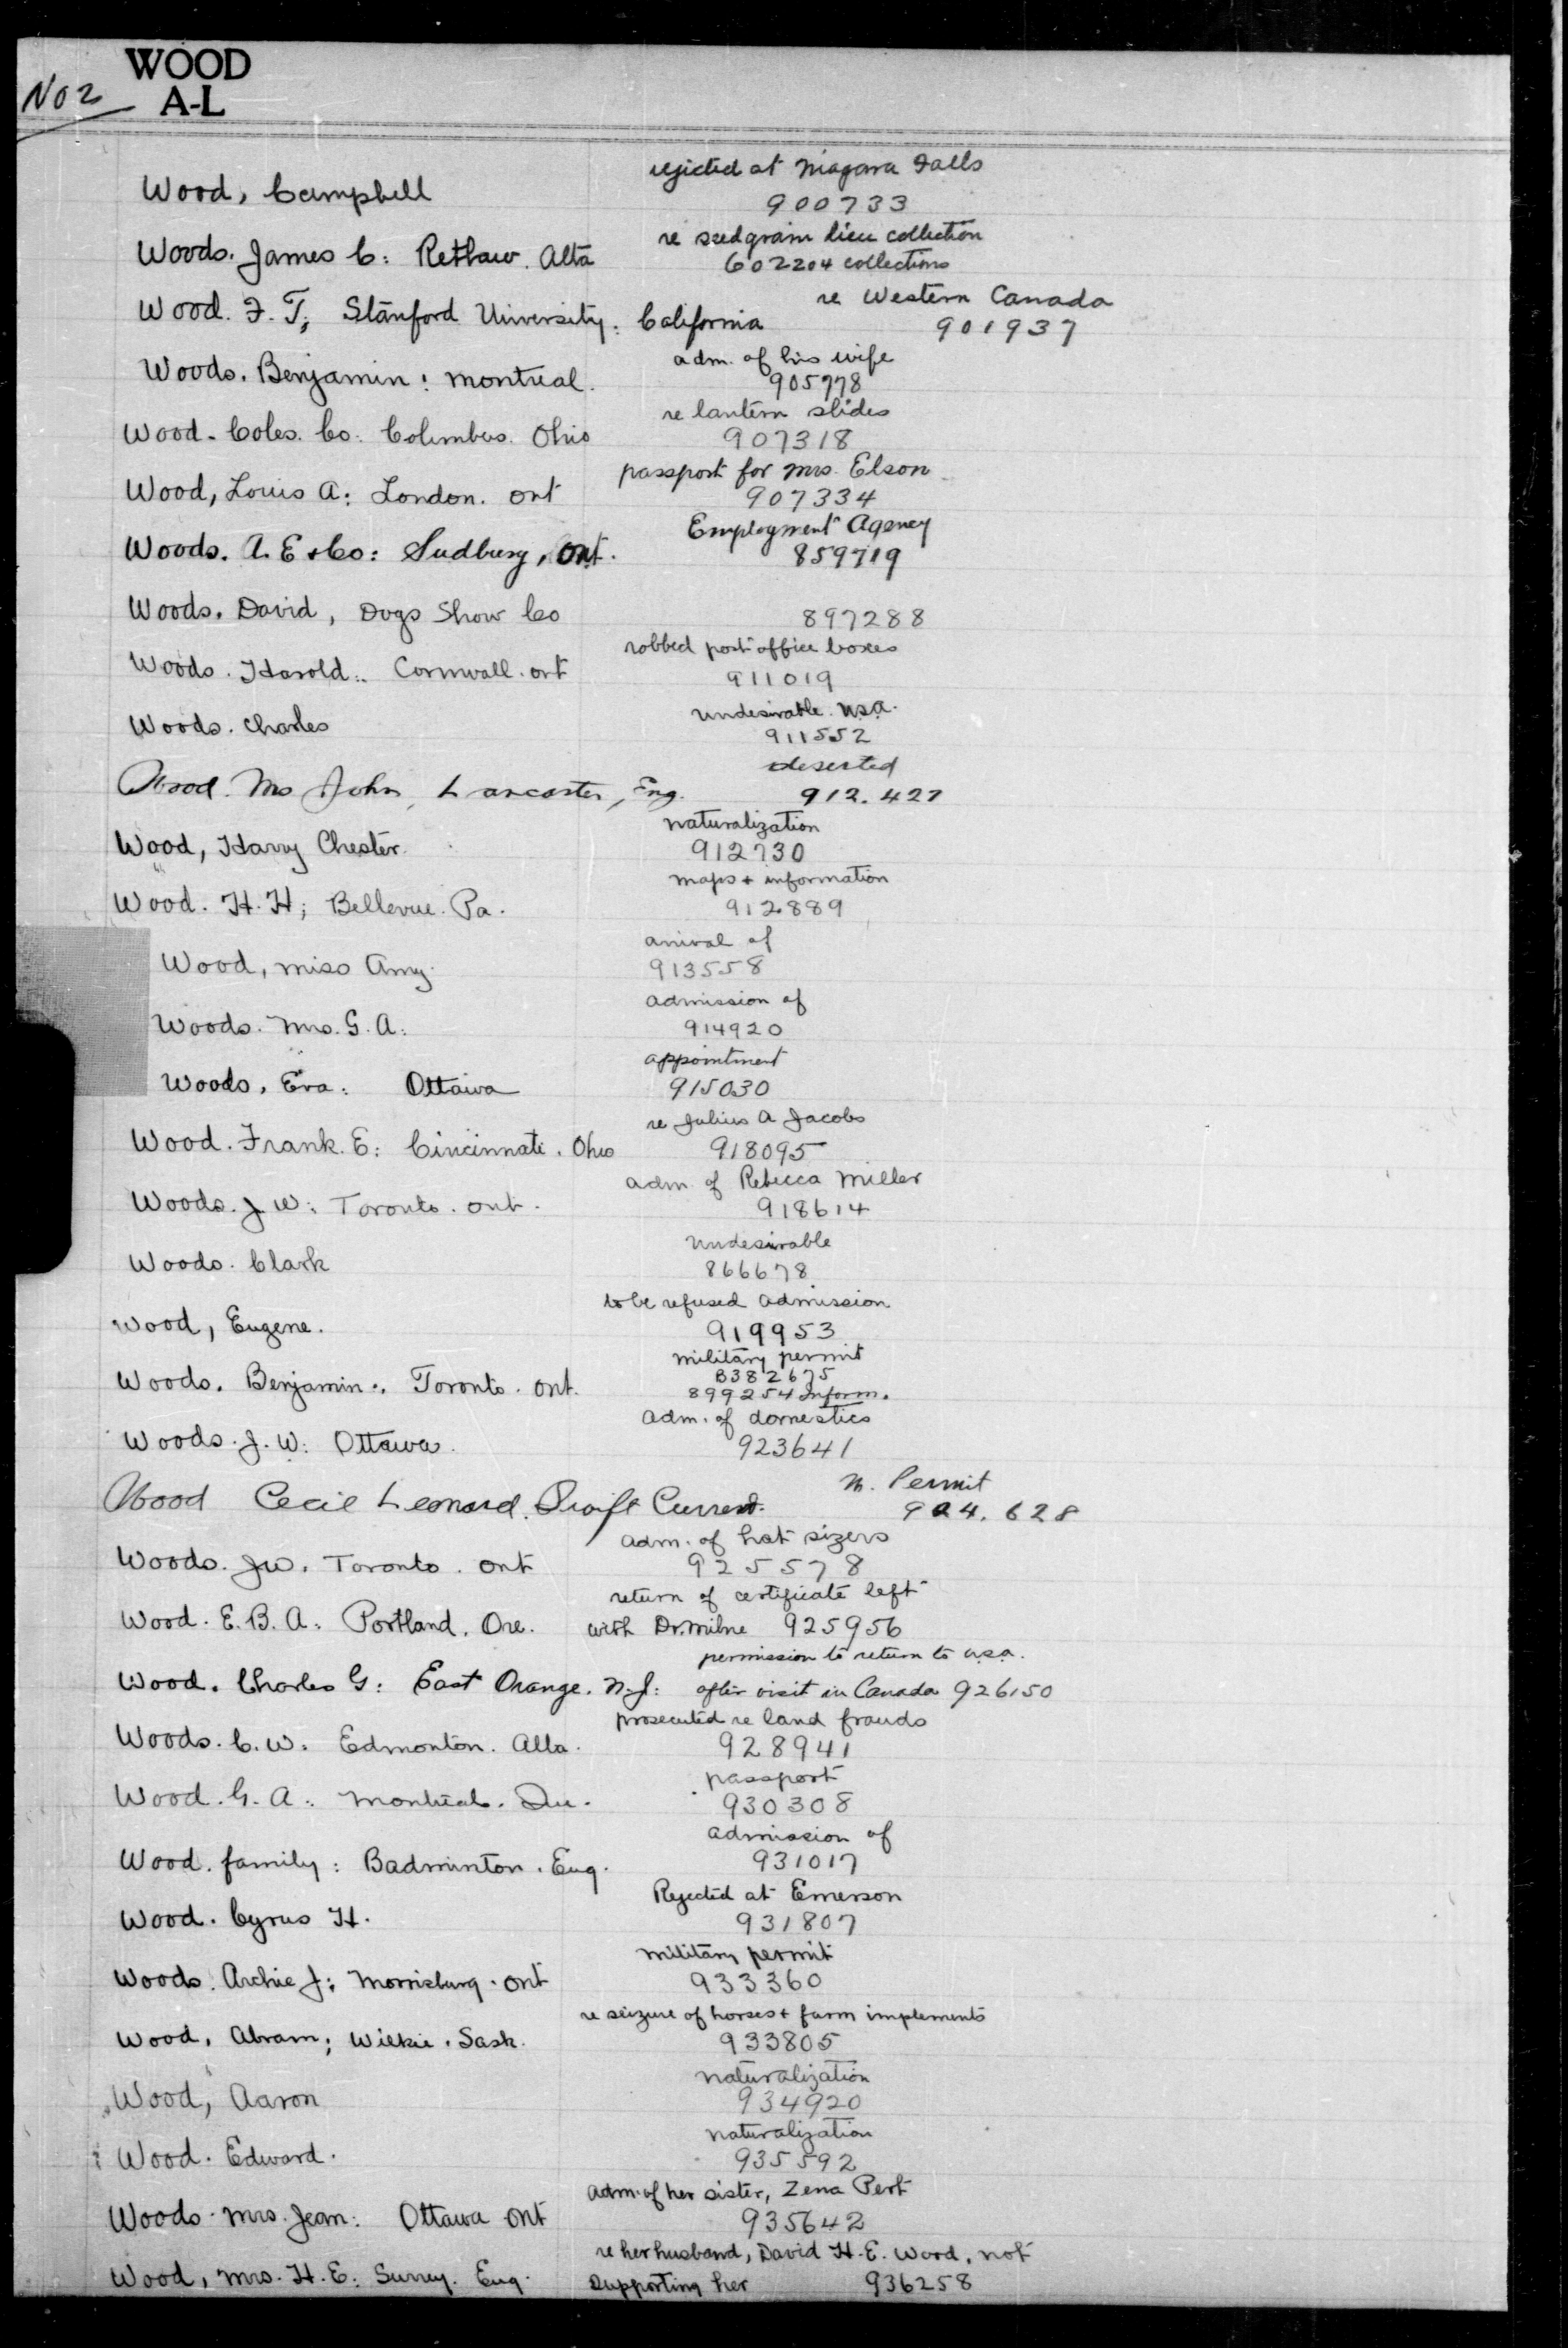 WOOD
No 2
A-L
rejicted at Niagara Falls
Wood, Campbell
900733
re seedgrain lien collection
Woods. James C: Retlaw. Alta
602204 collections
re Western Canada
Wood. F. T; Stanford University. California
901937
adm. of his wife
Woods. Benjamin: Montreal.
905778
re lantern slides
Wood-Coles. Co: Columbus. Ohio
907318
passport for Mrs. Elson
Wood, Louis A: London. Ont
907334
Employment Agency
Woods. A. E & Co: Sudbury, Ont.
859719
Woods. David, Dogs Show Co 897288
robbed post office boxes
Woods. Harold: Cornwall. Ont
911019
undesirable. U.S.A.
Woods. Charles
911552
deserted
Wood. Mrs John, Lancaster, Eng. 912.427
naturalization
Wood, Harry Chester.
912730
maps & information
Wood. H. H; Bellevue. Pa.
912889
arrival of
Wood, Miss Amy.
913558
admission of
Woods. Mrs. G. A.
914920
appointment
Woods, Eva: Ottawa
915030
re Julius A Jacobs
Wood. Frank. E: Cincinnati. Ohio
918095
adm. of Rebecca Miller
Woods. J. W: Toronto. Ont.
918614
Undesirable
Woods. Clark
866678
to be refused admission
Wood, Eugene.
919953
military permit
B382675
Woods. Benjamin: Toronto. Ont.
899254 Inform.
adm. of domestics
Woods. J. W: Ottawa.
923641
M. Permit
Wood Cecil Leonard. Swift Current.
924.628
adm. of hat sizers
Woods. J.W. Toronto. Ont
925578
return of certificate left
Wood. E. B. A: Portland. Ore. with Dr. Milne 925956
permission to return to U.S.A.
Wood. Charles G: East Orange. N.J: after visit in Canada 926150
prosecuted re land frauds
Woods. C. W: Edmonton. Alta.
928941
passport
Wood. G. A: Montreal. Que.
930308
admission of
Wood. family: Badminton. Eng.
931017
Rejected at Emerson
Wood. Cyrus H.
931807
military permit
Woods. Archie J: Morrisburg. Ont
933360
re seizure of horses & farm implements
Wood, Abram; Wilkie. Sask.
933805
naturalization
Wood, Aaron
934920
naturalization
Wood. Edward.
935592
adm. of her sister, Zena Pert
Woods. Mrs. Jean: Ottawa Ont
935642
re her husband, David H. E. Wood, not
Wood, Mrs. H. E: Surrey. Eng. supporting her 936258